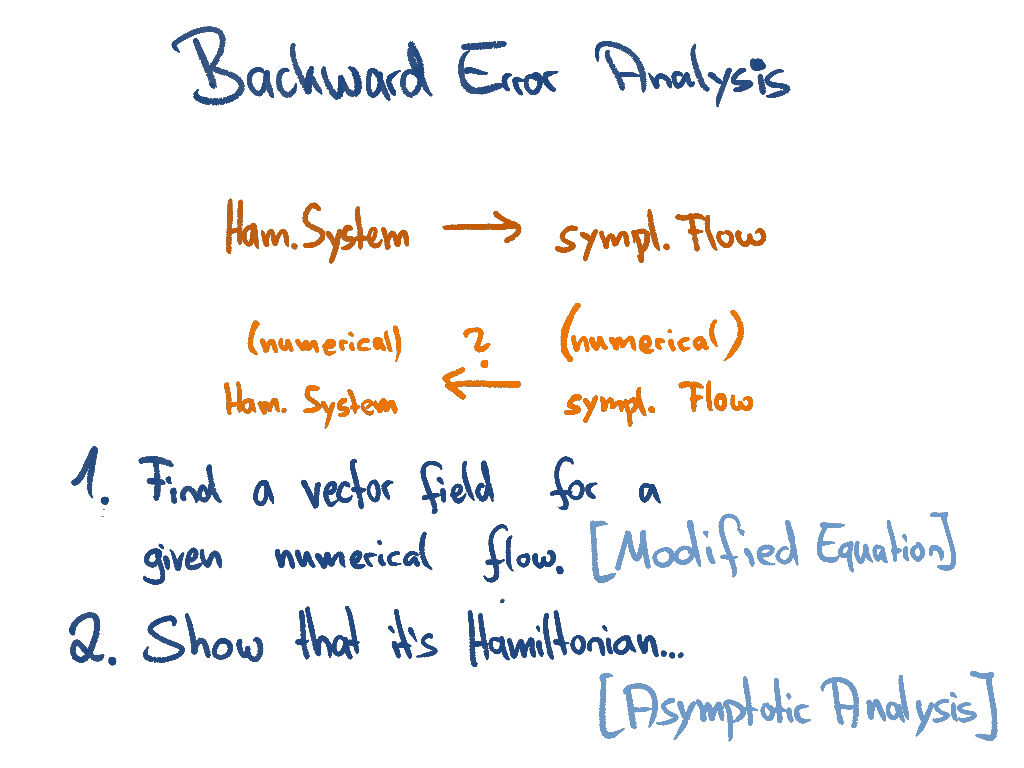 Backward Error Analysis
Ham. System → sympl. Flow
(numerical) ? (numerical)
Ham. System ← sympl. Flow
1. Find a vector field for a
given numerical flow. [Modified Equation]
2. Show that it's Hamiltonian...
[Asymptotic Analysis]